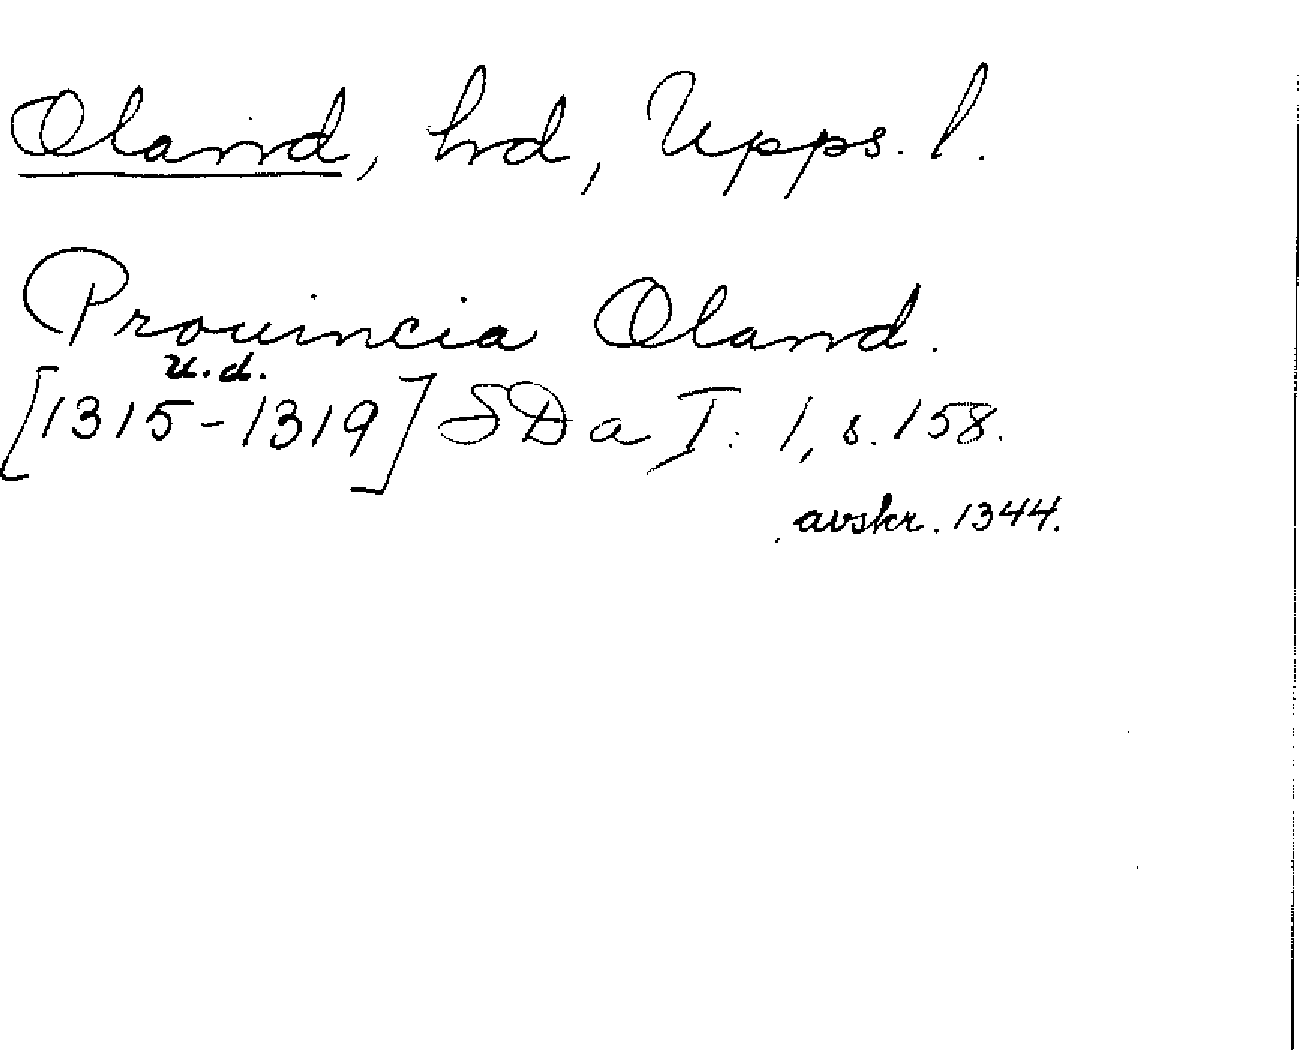 Oland, hd, Upps. l.
Prouincia Oland.
u.d.
[1315-1319] SDa I: 1, s. 158.
avskr. 1344.